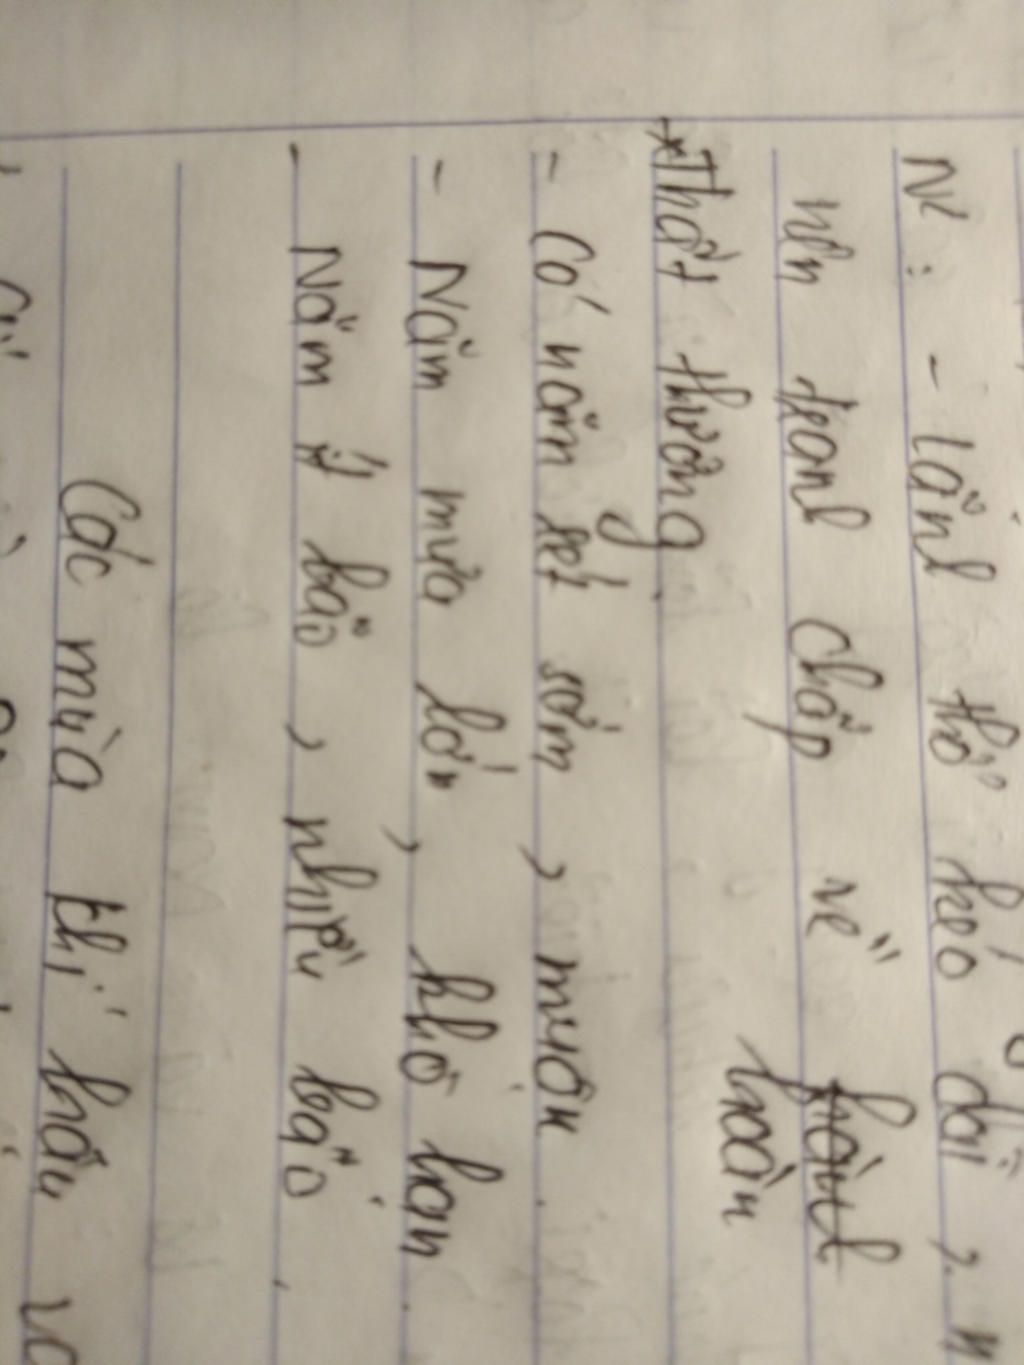 N: - Lãnh thổ kéo dài,
nên tranh chấp về
hoàn
* Thất thường
- Có năm rét sớm, muộn.
- Năm mưa lớn, khô hạn.
- Năm ít bão, nhiều bão.
Các mùa khí hậu